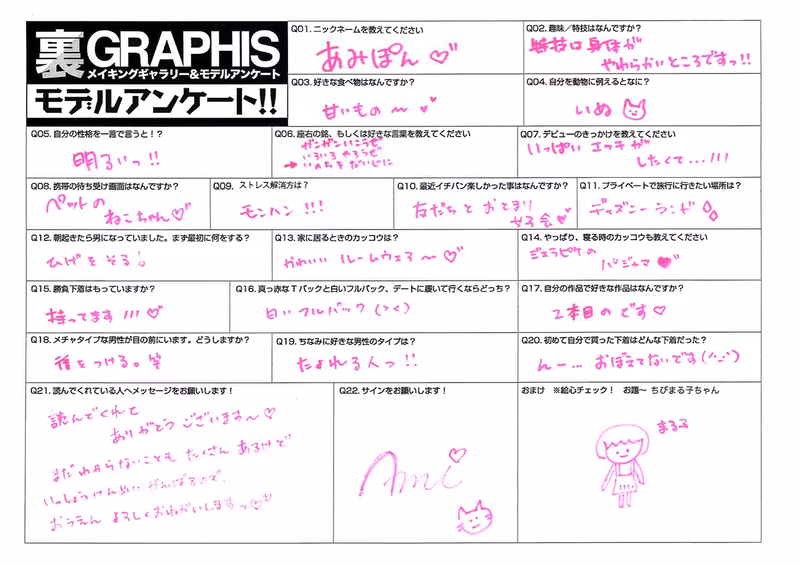 裏GRAPHIS
メイキングギャラリー&モデルアンケート
モデルアンケート!!
Q01. ニックネームを教えてください
あみぽん♡
Q02. 趣味／特技はなんですか?
特技は身体が
やわらかいところですっ!!
Q03. 好きな食べ物はなんですか?
甘いもの〜
Q04. 自分を動物に例えるとなに?
いぬ
Q05. 自分の性格を一言で言うと!?
明るいっ!!
Q06. 座右の銘、もしくは好きな言葉を教えてください
ガンガンいこうぜ
いろいろやろうぜ
→いのちをだいじに
Q07. デビューのきっかけを教えてください
いっぱいエッチが
したくて...!!!
Q08. 携帯の待ち受け画面はなんですか?
ペットの
ねこちゃん♡
Q09. ストレス解消方は?
モンハン!!!
Q10. 最近イチバン楽しかった事はなんですか?
友だちとおとまり
女子会
Q11. プライベートで旅行に行きたい場所は?
ディズニーランド
Q12. 朝起きたら男になっていました。まず最初に何をする?
ひげをそる!
Q13. 家に居るときのカッコウは?
かわいいルームウェア〜♡
Q14. やっぱり、寝る時のカッコウも教えてください
ジェラピケの
パジャマ♥
Q15. 勝負下着はもっていますか?
持ってます!!!♡
Q16. 真っ赤なTバックと白いフルバック、デートに履いて行くならどっち?
白いフルバック(><)
Q17. 自分の作品で好きな作品はなんですか?
2本目のです♡
Q18. メチャタイプな男性が目の前にいます。どうしますか?
後をつける。笑
Q19. ちなみに好きな男性のタイプは?
たよれる人っ!!
Q20. 初めて自分で買った下着はどんな下着だった?
んー...おぼえてないです
Q21. 読んでくれている人へメッセージをお願いします!
読んでくれて
ありがとうございます〜♡
まだわからないこともたくさんあるけど
いっしょうけんめいがんばるので、
おうえんよろしくおねがいしますっ♡♡
Q22. サインをお願いします!
Ami♡
おまけ ※絵心チェック! お題〜 ちびまる子ちゃん
まる子